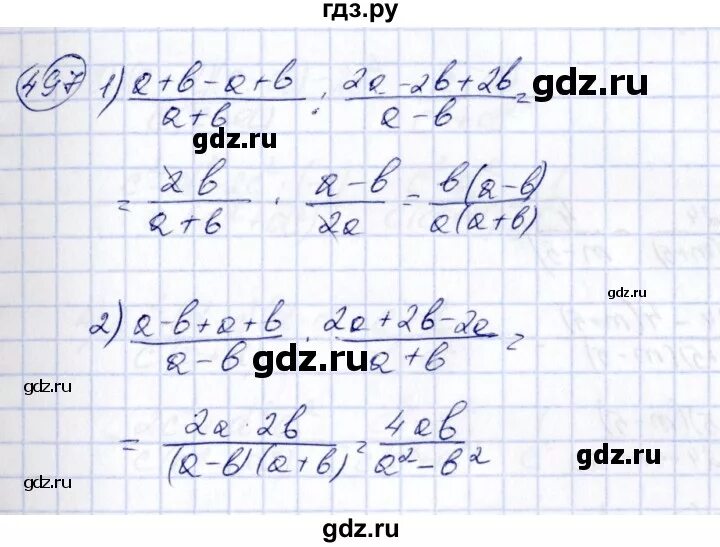 гдз.ру
497 1) (a+b-a+b)/(a+b) : (2a-2b+2b)/(a-b) =
gdz.ru
gdz.ru
= 2b/(a+b) · (a-b)/2a = b(a-b)/a(a+b)
2) (a-b+a+b)/(a-b) · (2a+2b-2a)/(a+b) =
gdz.ru
gdz.ru
gdz.ru
= 2a·2b/(a-b)(a+b) = 4ab/(a²-b²)
gdz.ru
gdz.ru
gdz.ru